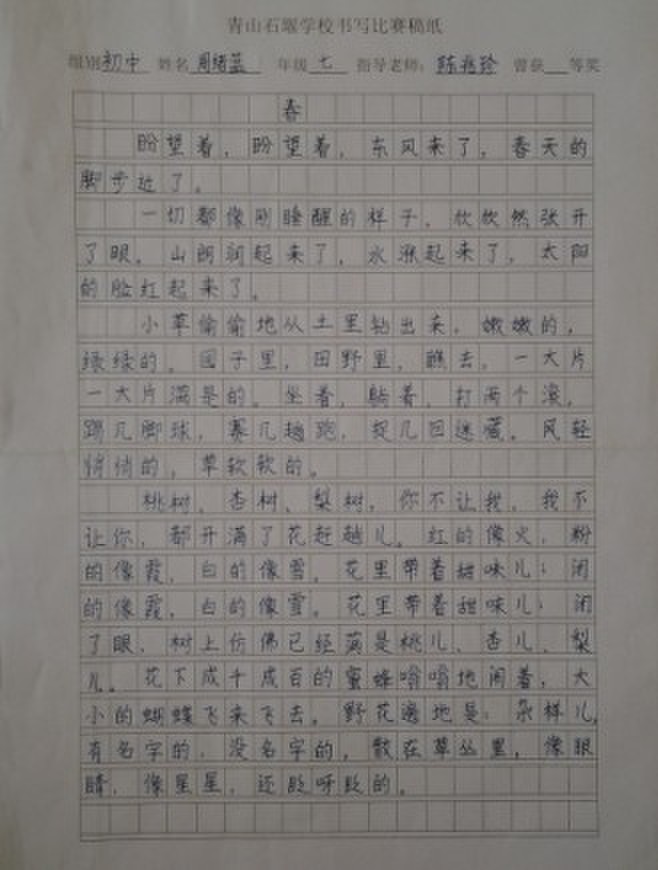 青山石堰学校书写比赛稿纸
组别初中 姓名周绪蓝 年级七 指导老师：陈兆玲 曾获 等奖
春
盼望着，盼望着，东风来了，春天的
脚步近了。
一切都像刚睡醒的样子，欣欣然张开
了眼。山朗润起来了，水涨起来了，太阳
的脸红起来了。
小草偷偷地从土里钻出来，嫩嫩的，
绿绿的。园子里，田野里，瞧去，一大片
一大片满是的。坐着，躺着，打两个滚，
踢几脚球，赛几趟跑，捉几回迷藏。风轻
悄悄的，草软软的。
桃树、杏树、梨树，你不让我，我不
让你，都开满了花赶趟儿。红的像火，粉
的像霞，白的像雪。花里带着甜味儿；闭
的像霞，白的像雪。花里带着甜味儿；闭
了眼，树上仿佛已经满是桃儿、杏儿、梨
儿。花下成千成百的蜜蜂嗡嗡地闹着，大
小的蝴蝶飞来飞去。野花遍地是：杂样儿，
有名字的，没名字的，散在草丛里，像眼
睛，像星星，还眨呀眨的。